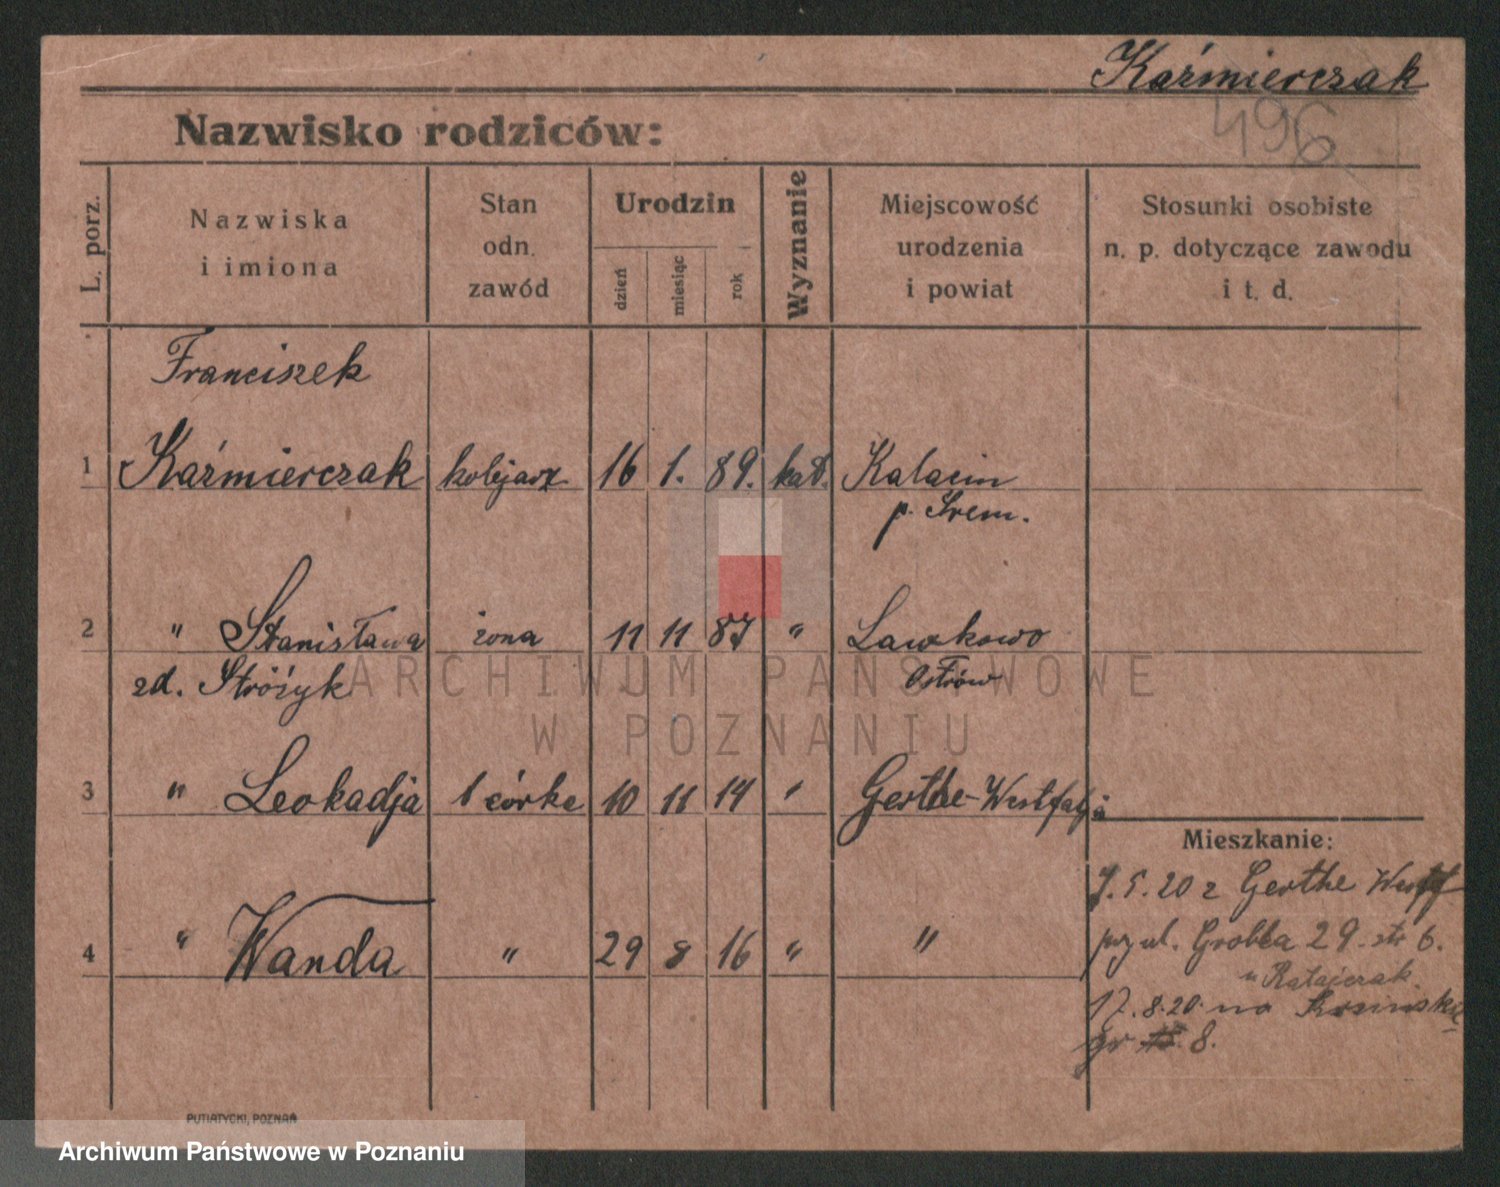 Kaźmierczak
496
Nazwisko rodziców:
L. porz.
Nazwiska
i imiona
Stan
odn.
zawód
Urodzin
dzień
miesiąc
rok
Wyznanie
Miejscowość
urodzenia
i powiat
Stosunki osobiste
n. p. dotyczące zawodu
i t. d.
Franciszek
1 Kaźmierczak kolejarz 16 1. 89. kat. Kalacin
p. Śrem.
2 " Stanisława żona 11 11 87 " Lawkowo
zd. Stróżyk Ostrów
3 " Leokadja 1 córka 10 11 14 " Gerthe-Westfalja
4 " Wanda " 29 8 16 " "
Mieszkanie:
7.5.20 z Gerthe Westf
przy ul. Grobla 29. str 6.
u Ratajczak.
17.8.20. na
8.
PUTIATYCKI, POZNAŃ
ARCHIWUM PAŃSTWOWE
W POZNANIU
Archiwum Państwowe w Poznaniu